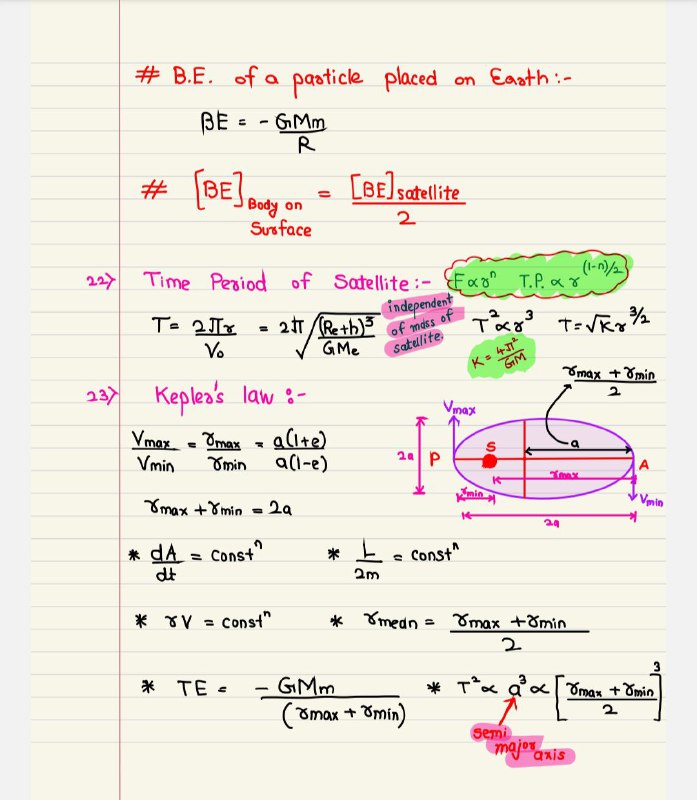 # B.E. of a particle placed on Earth :-
BE = - GMm / R
# [BE] Body on Surface = [BE] satellite / 2
22> Time Period of Satellite :- F ∝ r^n T.P. ∝ r^(1-n)/2
T = 2πr / Vo = 2π √((Re+h)^3 / GMe) independent of mass of satellite. T^2 ∝ r^3 T = √K r^3/2
K = 4π^2 / GM
23> Kepler's law :- rmax + rmin / 2
Vmax / Vmin = rmax / rmin = a(1+e) / a(1-e)
Vmax
2a P S a A
rmax
rmin Vmin
2a
rmax + rmin = 2a
* dA / dt = const^n * L / 2m = const^n
* rV = const^n * rmean = rmax + rmin / 2
* TE = - GMm / (rmax + rmin) * T^2 ∝ a^3 ∝ [rmax + rmin / 2]^3
semi major axis